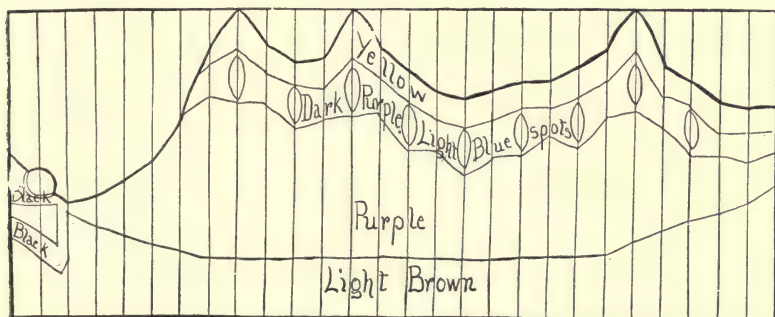 Yellow
Dark Purple, Light Blue spots
Black
Black
Purple
Light Brown